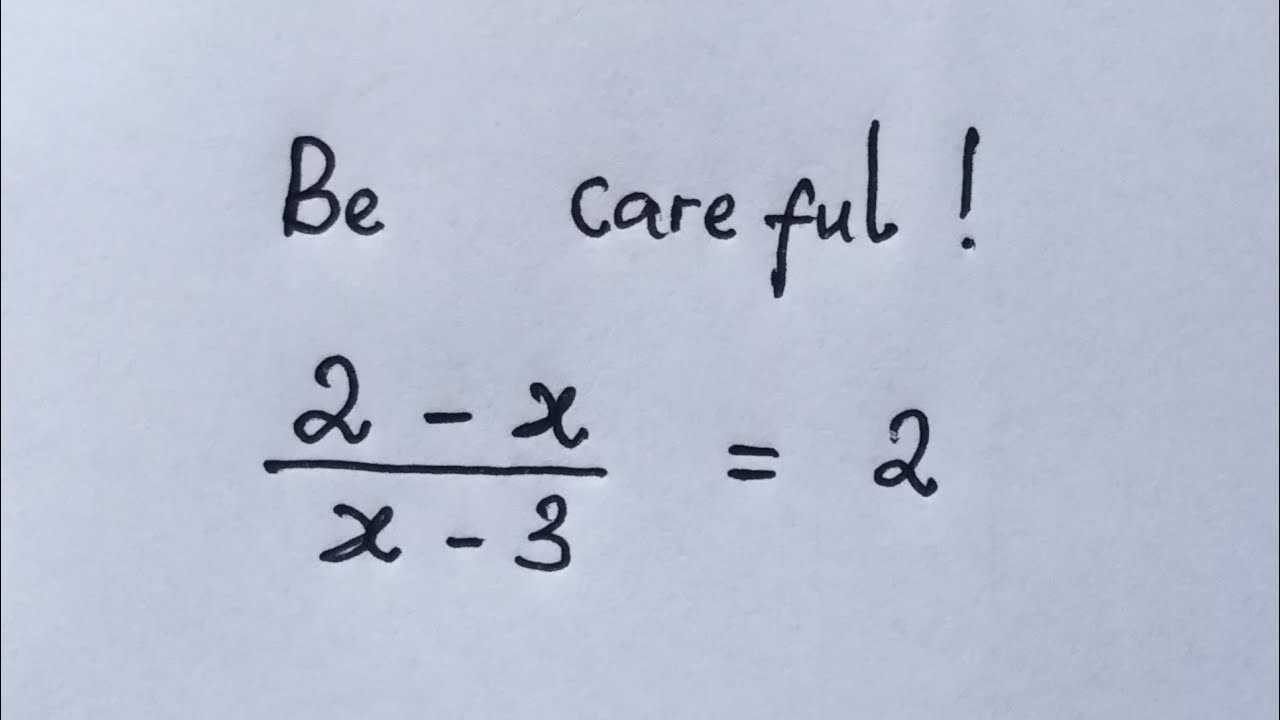 Be careful!
2 - x
x - 3
= 2